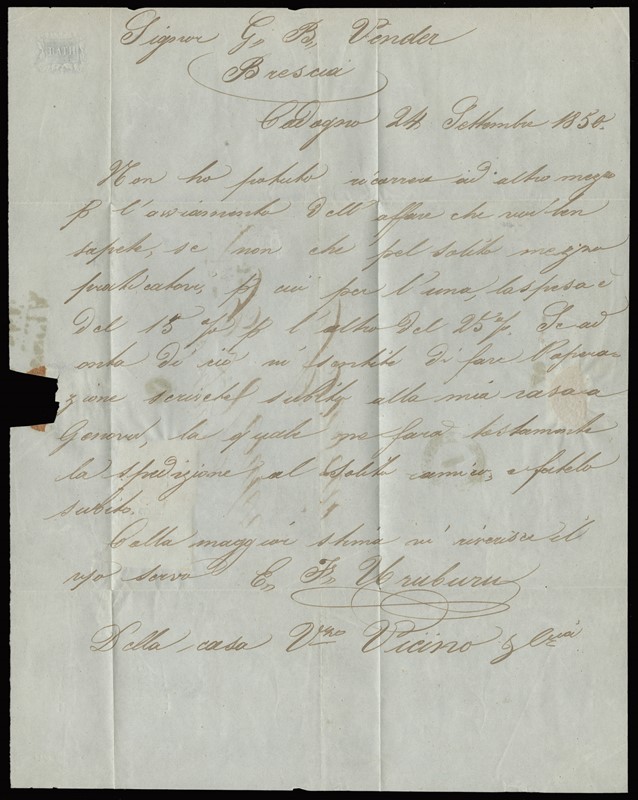 BATH
Signor G. B. Vender
Brescia
Codogno 24 Settembre 1850.
Non ho potuto ricorrere ad altro mezzo
p l'avviamento dell'affare che voi ben
sapete, se non che pel solito mezzo
praticatovi, p cui per l'una, la spesa è
del 15 % p l'altro del 25 %. Se ad
onta di ciò vi sentite di fare l'opera-
zione scrivete subito alla mia casa a
Genova, la quale ne farà testamente
la spedizione al solito amico, e fatelo
subito.
Colla maggior stima vi riverisce il
vso servo E. F. Uruburu
Della casa Vicino &